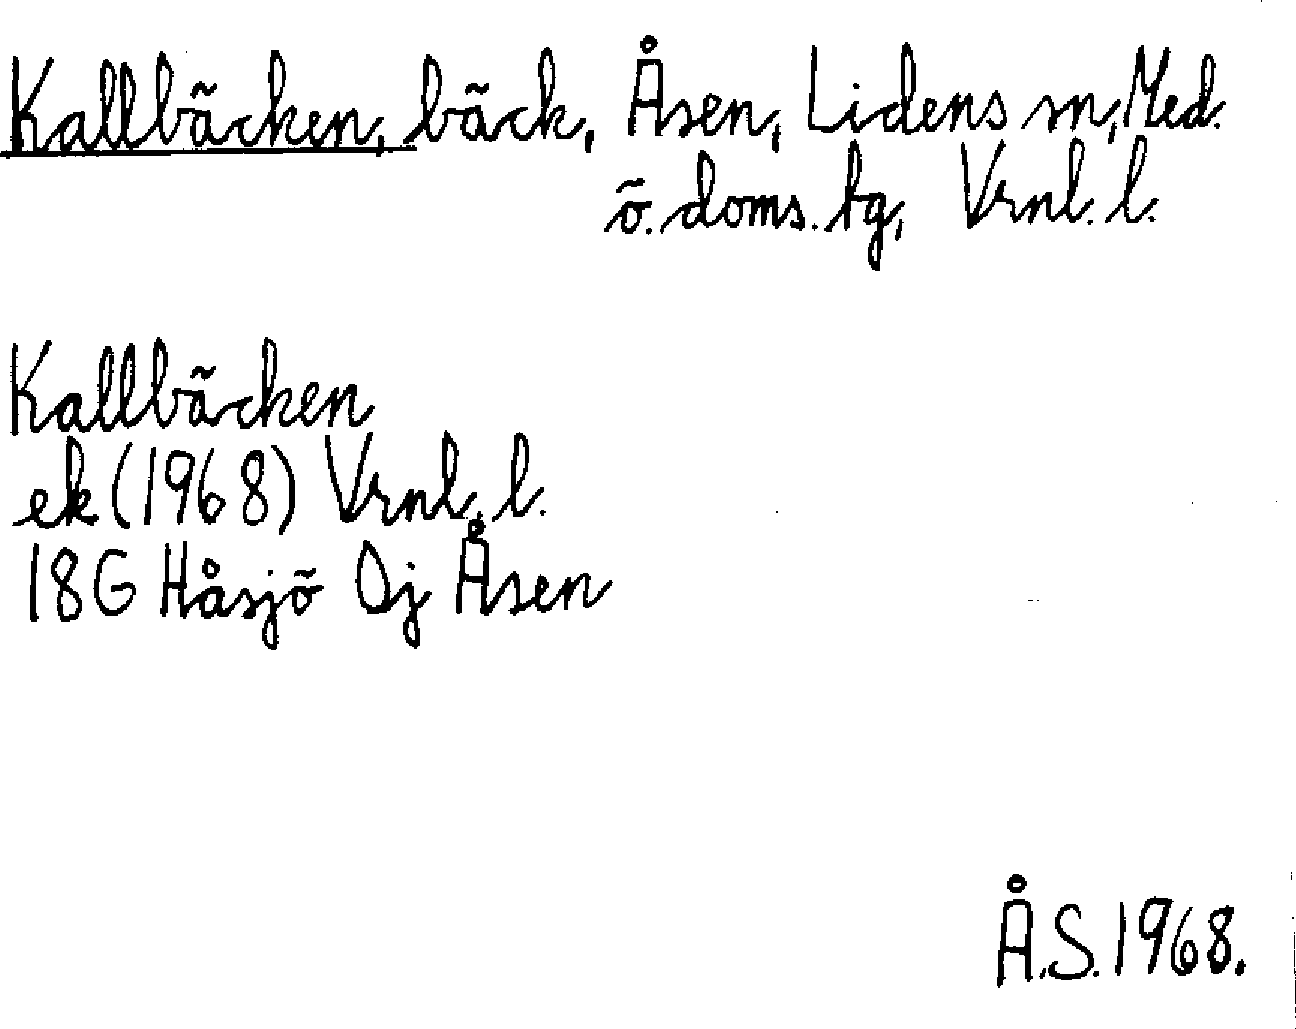 Kallbäcken, bäck, Åsen, Lidens sn, Med.
ö. doms. tg, Vrnl. l.
Kallbäcken
ek (1968) Vrnl. l.
18G Håsjö Oj Åsen
Å.S. 1968.